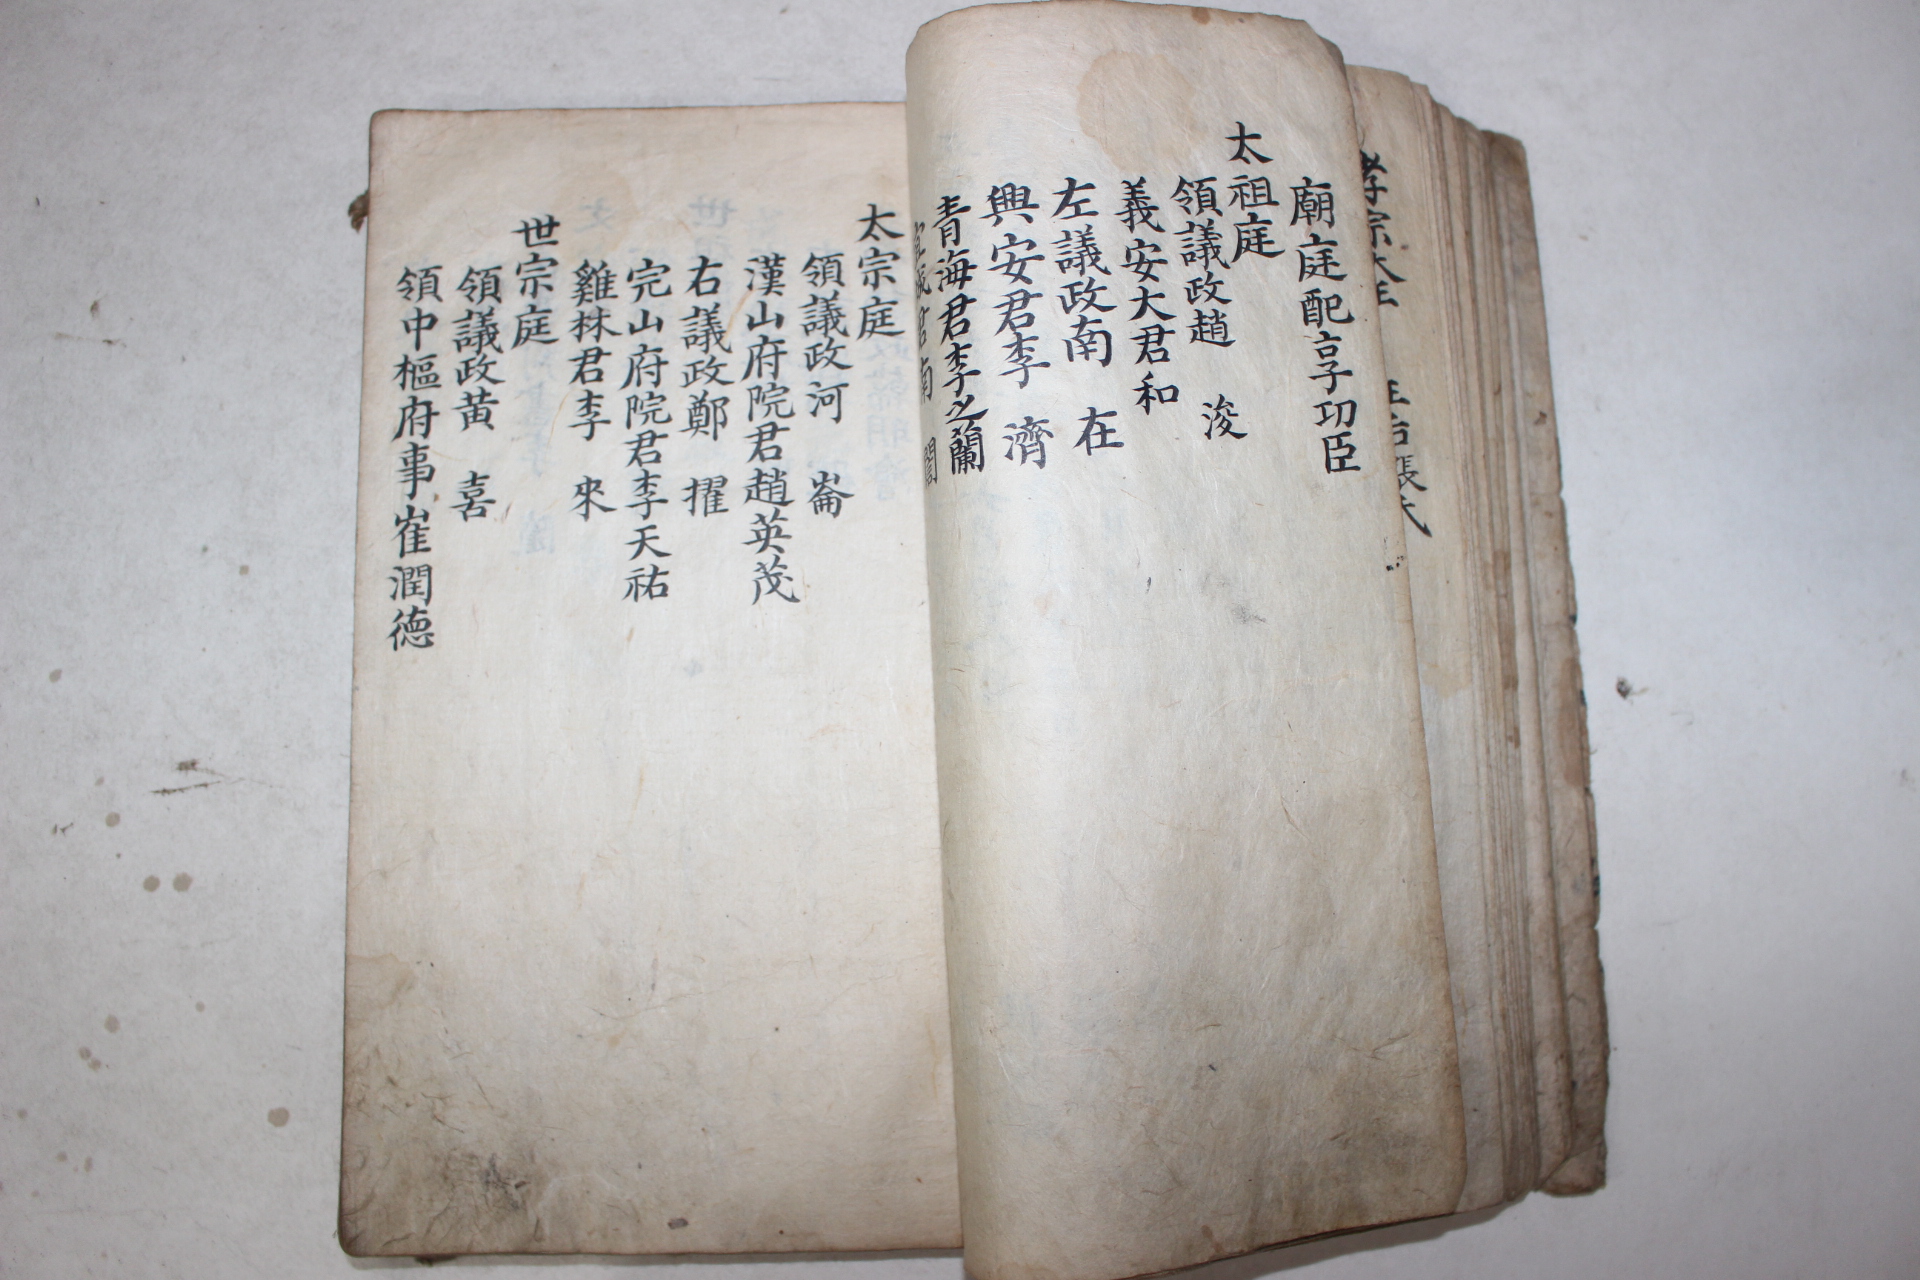 孝宗大王
廟庭配享功臣
太祖庭
領議政趙 浚
義安大君和
左議政南 在
興安君李 濟
青海君李之蘭
君南 誾
太宗庭
領議政河 崙
漢山府院君趙英茂
右議政鄭 擢
完山府院君李天祐
雞林君李 來
世宗庭
領議政黃 喜
領中樞府事崔潤德